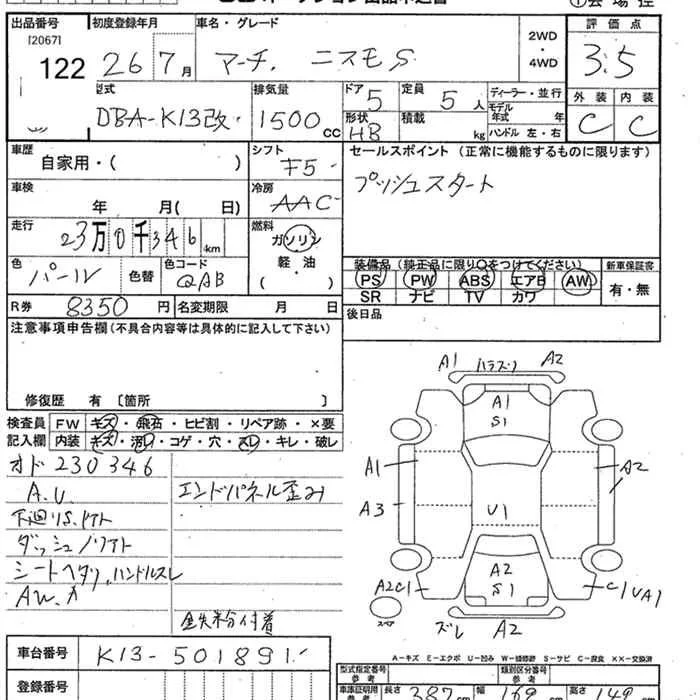 出品番号 初度登録年月 車名・グレード 2WD・4WD 評価点
[2067]
122 26年7月 マーチ. ニスモS 3.5
型式 排気量 ドア 5 定員 5人 ディーラー・並行 外装 内装
DBA-K13改 1500cc 形状 HB 積載 kg モデル年式 年 C C
ハンドル 左・右
車歴 自家用・( ) シフト F5 セールスポイント (正常に機能するものに限ります)
車検 年 月( 日) 冷房 AAC プッシュスタート
走行 23万0千346km 燃料 ガソリン
軽・油
( )
色 パール 色替 色コード QAB
装備品 (純正品に限り○をつけてください) 新車保証書
PS PW ABS エアB AW 有・無
SR ナビ TV カワ
R券 8350円 名変期限 月 日 後日品
注意事項申告欄 (不具合内容等は具体的に記入して下さい)
修復歴 有 〔箇所 〕
検査員 FW キズ・飛石・ヒビ割・リペア跡・×要
記入欄 内装 キズ・汚レ・コゲ・穴・スレ・キレ・破レ
オド230346
A.U. エンドパネル歪み
ダッシュ
シートヘタリ,ハンドルスレ
鉄粉付着
A1 A2
A1
S1
A1 A2
A3
U1
A2
S1
A2C1 C1 UA1
スペア
ズレ A2
A-キズ E-エクボ U-凹み W-補修跡 S-サビ C-腐食 XX-交換済
車台番号 K13-501891
登録番号
型式指定番号 参考 類別区分番号 参考
車庫証明用 参考 長さ 387cm 幅 169cm 高さ 149cm